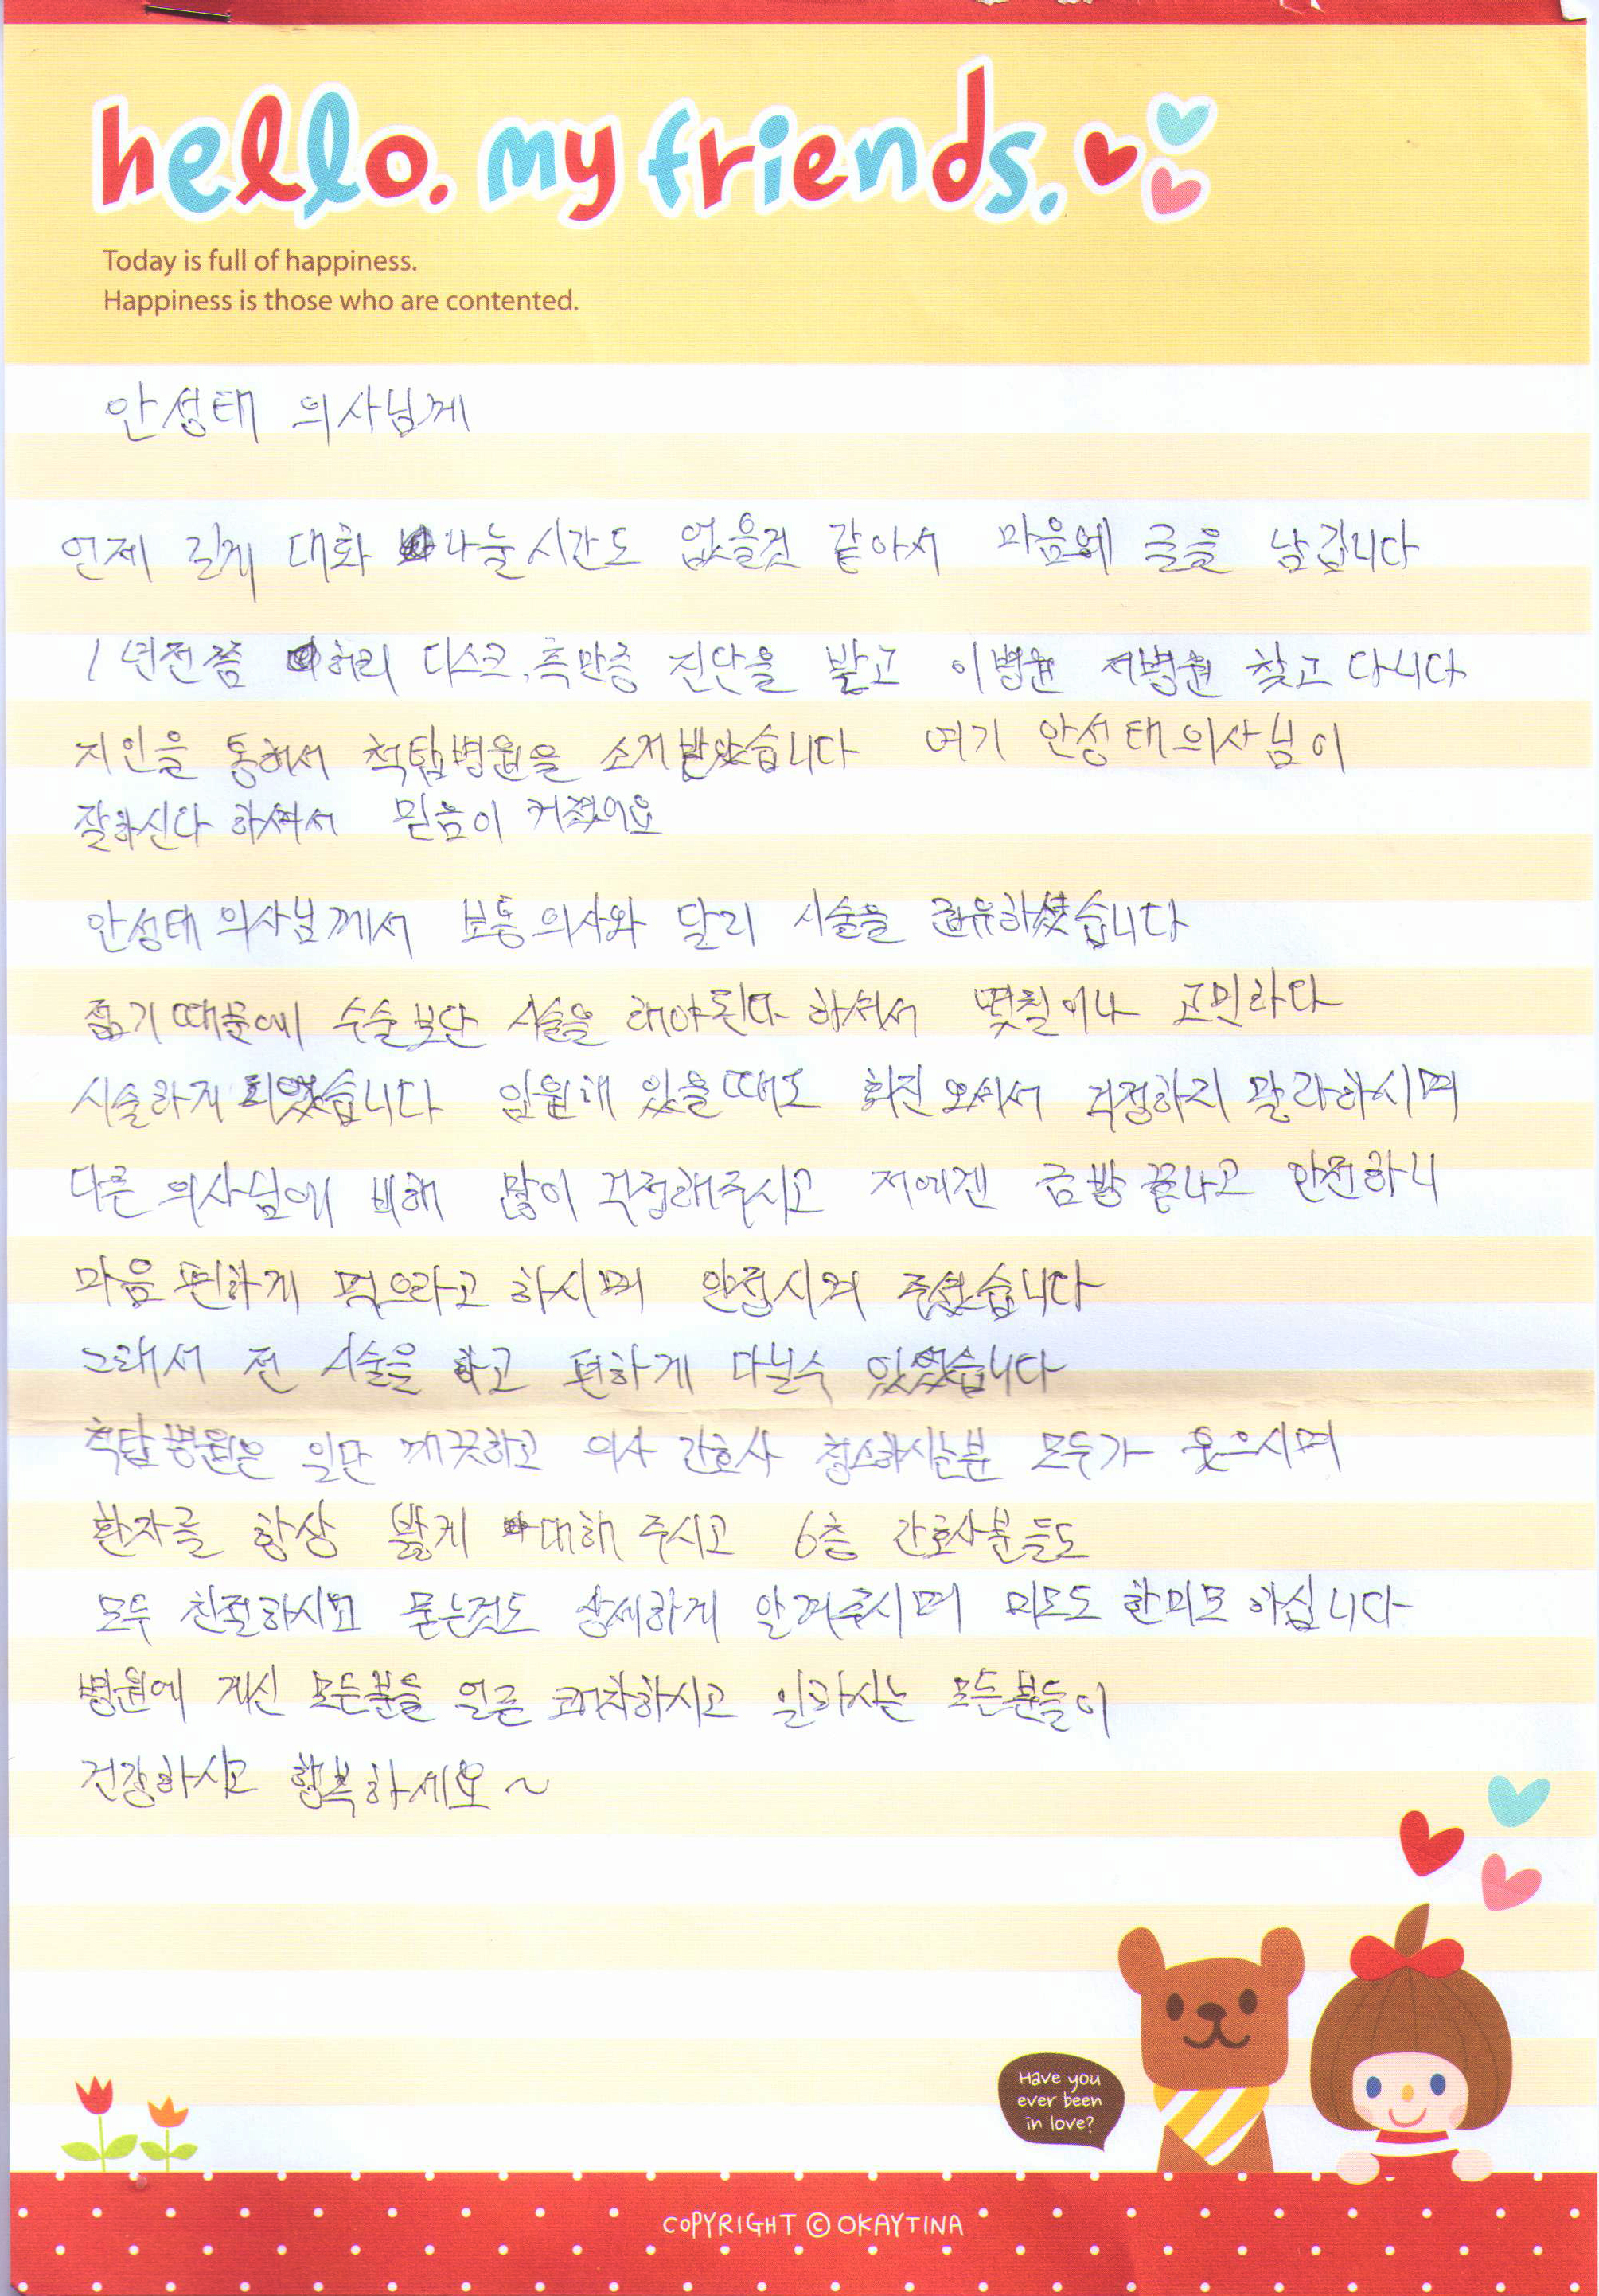 hello. my friends.
Today is full of happiness.
Happiness is those who are contented.
안성태 의사님께
언제 길게 대화 나눌시간도 없을것 같아서 마음에 글을 남깁니다
1년전쯤 허리 디스크,측만증 진단을 받고 이병원 저병원 찾고 다니다
지인을 통해서 척탑병원을 소개받았습니다 여기 안성태의사님이
잘하신다 하셔서 믿음이 커졌어요
안성태 의사님께서 보통의사와 달리 시술을 권유하셨습니다
젊기때문에 수술보단 시술을 해야된다 하셔서 몇칠이나 고민하다
시술하게 되었습니다 입원해 있을때도 회진오셔서 걱정하지 말라하시며
다른 의사님에 비해 많이 걱정해주시고 저에겐 금방 끝나고 안전하니
마음 편하게 먹으라고 하시며 안정시켜 주셨습니다
그래서 전 시술을 하고 편하게 다닐수 있었습니다
척탑병원은 일단 깨끗하고 의사 간호사 청소하시는분 모두가 웃으시며
환자를 항상 밝게 대해 주시고 6층 간호사분들도
모두 친절하시고 묻는것도 상세하게 알려주시며 미모도 한미모 하십니다
병원에 계신 모든분들 얼른 쾌차하시고 일하시는 모든분들이
건강하시고 행복하세요~
Have you
ever been
in love?
COPYRIGHT © OKAYTINA